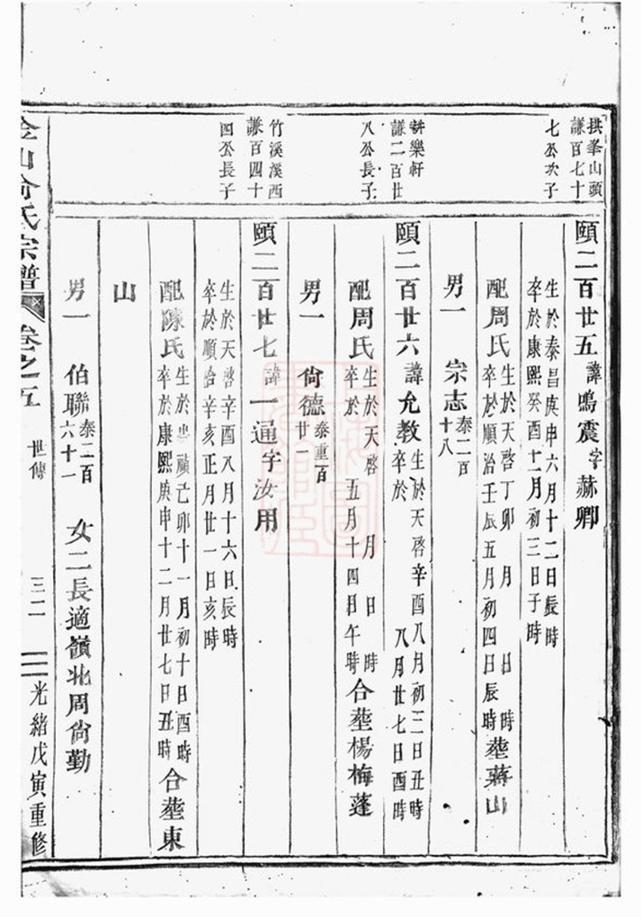 拱峯山頭
謙百七十
七公次子
頤二百廿五諱鳴震字赫卿
生於泰昌庚申六月十二日辰時
卒於康熙癸酉十二月初三日子時
配周氏生於天啓丁卯 月 日 時
卒於順治壬辰五月初四日辰時葬蔣山
男一 宗志泰二百
十八
耕樂軒
謙二百廿
八公長子
頤二百廿六諱允教生於天啓辛酉八月初三日丑時
卒於 八月廿七日酉時
配周氏生於天啓 月 日 時
卒於 五月十四日午時合塟楊梅蓬
男一 尙德泰重百
廿一
竹溪溪西
謙百四十
四公長子
頤二百廿七諱一通字汝用
生於天啓辛酉八月十六日辰時
卒於順治辛亥正月廿一日亥時
配陳氏生於 禎己卯十一月初十日酉時
卒於康熙庚申十二月廿七日丑時合塟東
山
男一 伯聯泰二百
六十一 女二長適嶺北周尙勤
金山俞氏宗譜 卷之五 世傳 三二 光緒戊寅重修